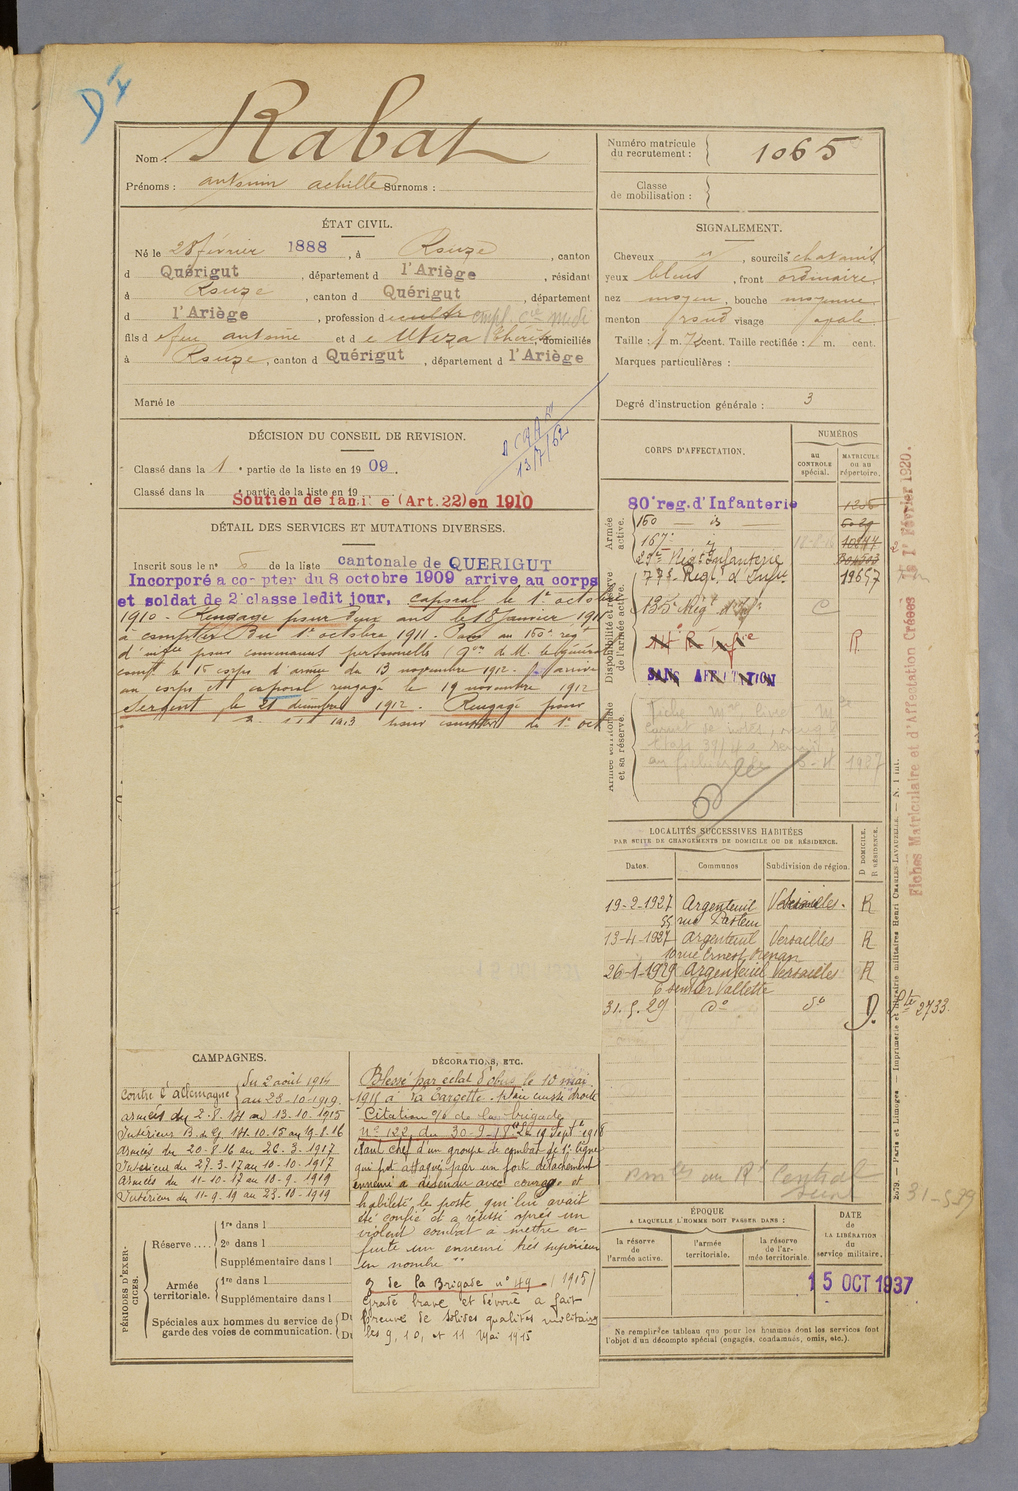 D I
Nom : Rabat
Prénoms : antonin achille Surnoms :
Numéro matricule du recrutement : 1065
Classe de mobilisation :
ÉTAT CIVIL.
Né le 28 février 1888, à Rouze, canton
d Quérigut, département d l'Ariège, résidant
à Rouze, canton d Quérigut, département
d l'Ariège, profession d empl. Cie midi
fils d feu antoine et d e domiciliés
à Rouze, canton d Quérigut, département d l'Ariège
Marié le
SIGNALEMENT.
Cheveux et, sourcils chatains
yeux bleus, front ordinaire
nez moyen, bouche moyenne
menton rond visage ovale
Taille : 1 m. cent. Taille rectifiée : 1 m. cent.
Marques particulières :
Degré d'instruction générale : 3
DÉCISION DU CONSEIL DE REVISION.
13/7/62
Classé dans la 1e partie de la liste en 1909.
Classé dans la e partie de la liste en 19
Soutien de famille (Art. 22) en 1910
DÉTAIL DES SERVICES ET MUTATIONS DIVERSES.
Inscrit sous le n° 5 de la liste cantonale de QUERIGUT
Incorporé a compter du 8 octobre 1909 arrive au corps
et soldat de 2e classe ledit jour, caporal le 1er octobre
1910 - Rengagé pour deux ans le 18 janvier 1911
à compter du 1er octobre 1911. Passé au 160e regt
d'infie pour convenances personnelles (Don de M. le Général
comdt le 15e corps d'armée du 13 novembre 1912. arrivé
au corps et caporal rengagé le 19 novembre 1912
Sergent le 21 décembre 1912. Rengagé pour
1913 pour compter du 1er oct
CORPS D'AFFECTATION.
NUMÉROS
au CONTROLE spécial.
MATRICULE ou au répertoire.
Armée active.
80e reg. d'Infanterie
160 — is
167e
29e Régt Infanterie
10877
Disponibilité et réserve de l'armée active.
Régt d'Infie 19657
135e Régt d'Infie C
R
SANS AFFECTATION
Armée territoriale et sa réserve.
1937
Fiches Matriculaire et d'Affectation Créées le 1er Février 1920.
LOCALITÉS SUCCESSIVES HABITÉES
PAR SUITE DE CHANGEMENTS DE DOMICILE OU DE RÉSIDENCE.
D DOMICILE. R RÉSIDENCE.
Dates. Communes Subdivision de région.
19-2-1927 Argenteuil Versailles. R
55 rue Pasteur
13-4-1927 Argenteuil Versailles R
10 rue Ernest Renan
26-1-1929 Argenteuil Versailles R
6 sentier Vallette
31.5.29 do do D.
Ste 2733
CAMPAGNES.
Contre l'allemagne du 2 août 1914
au 23-10-1919.
armées du 2-8-14 au 13-10-1915
Intérieur B. de G. 14-10-15 au 19-8-16
Armées du 20-8-16 au 26-3-1917
Intérieur du 27-3-17 au 10-10-1917
Armées du 11-10-17 au 10-9-1919
Intérieur du 11-9-19 au 23-10-1919
DÉCORATIONS, ETC.
Blessé par éclat d'obus le 10 mai
1915 à La Targette - plaie cuisse droite
Citation o/b de la brigade
N° 122 du 30-9-18 "Le 19 Septe 1918
étant chef d'un groupe de combat de 1e ligne
qui fut attaqué par un fort détachement
ennemi a défendu avec courage et
habileté le poste qui lui avait
été confié et a réussi après un
violent combat à mettre en
fuite un ennemi très supérieur
en nombre"
O de la Brigade n° 49 (1915)
Gradé brave et dévoué a fait
preuve de solides qualités militaires
les 9, 10, et 11 Mai 1915
PÉRIODES D'EXERCICES.
Réserve.... 1re dans l
2e dans l
Supplémentaire dans l
Armée territoriale. 1re dans l
Supplémentaire dans l
Spéciales aux hommes du service de garde des voies de communication. Du
Du
au Rt Central
31-5-39
ÉPOQUE
A LAQUELLE L'HOMME DOIT PASSER DANS :
la réserve de l'armée active.
l'armée territoriale.
la réserve de l'armée territoriale.
DATE de LA LIBÉRATION du service militaire.
15 OCT 1937
Ne remplir ce tableau que pour les hommes dont les services font
l'objet d'un décompte spécial (engagés, condamnés, omis, etc.).
2079. — Paris et Limoges. — Imprimerie et librairie militaires Henri CHARLES-LAVAUZELLE. — N. 1 int.